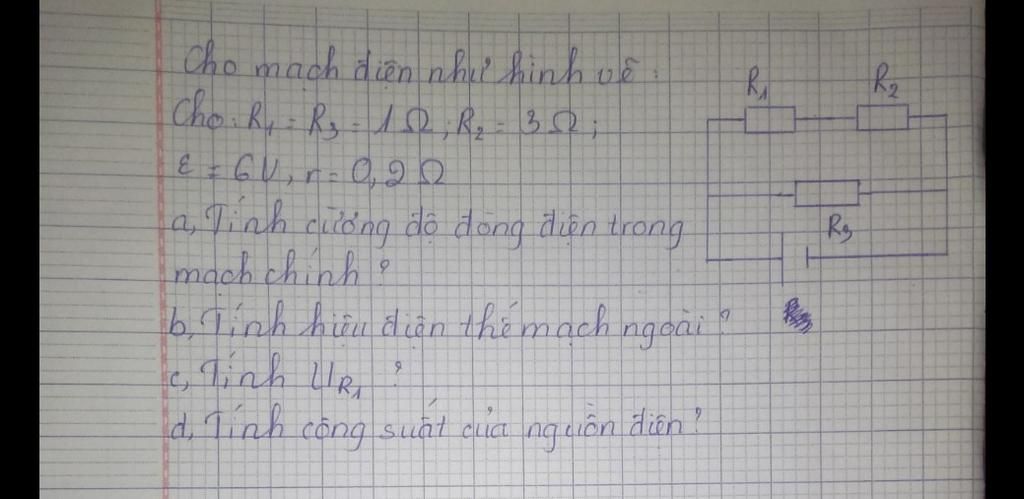 Cho mạch điện như hình vẽ:
Cho: R₁ = R₃ = 1Ω; R₂ = 3Ω;
ε = 6V, r = 0,2Ω
a, Tính cường độ dòng điện trong
mạch chính?
b, Tính hiệu điện thế mạch ngoài?
c, Tính U_R₁?
d, Tính công suất của nguồn điện?
R₁ R₂
R₃